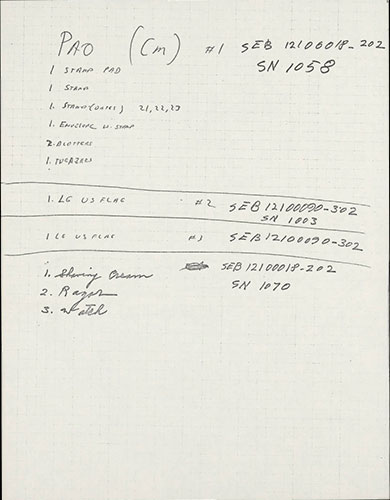 PAO (CM) #1 SEB 12100018-202
SN 1058
1 STAMP PAD
1 STAMP
1 STAMP (DATES) 21, 22, 23
1. ENVELOPE W. STAMP
2. BLOTTERS
1. TWEEZERS
1. LG US FLAG #2 SEB 12100090-302
SN 1003
1 LG US FLAG #3 SEB 12100090-302
1. Shaving Cream SEB 12100018-202
2. Razor SN 1070
3. Watch